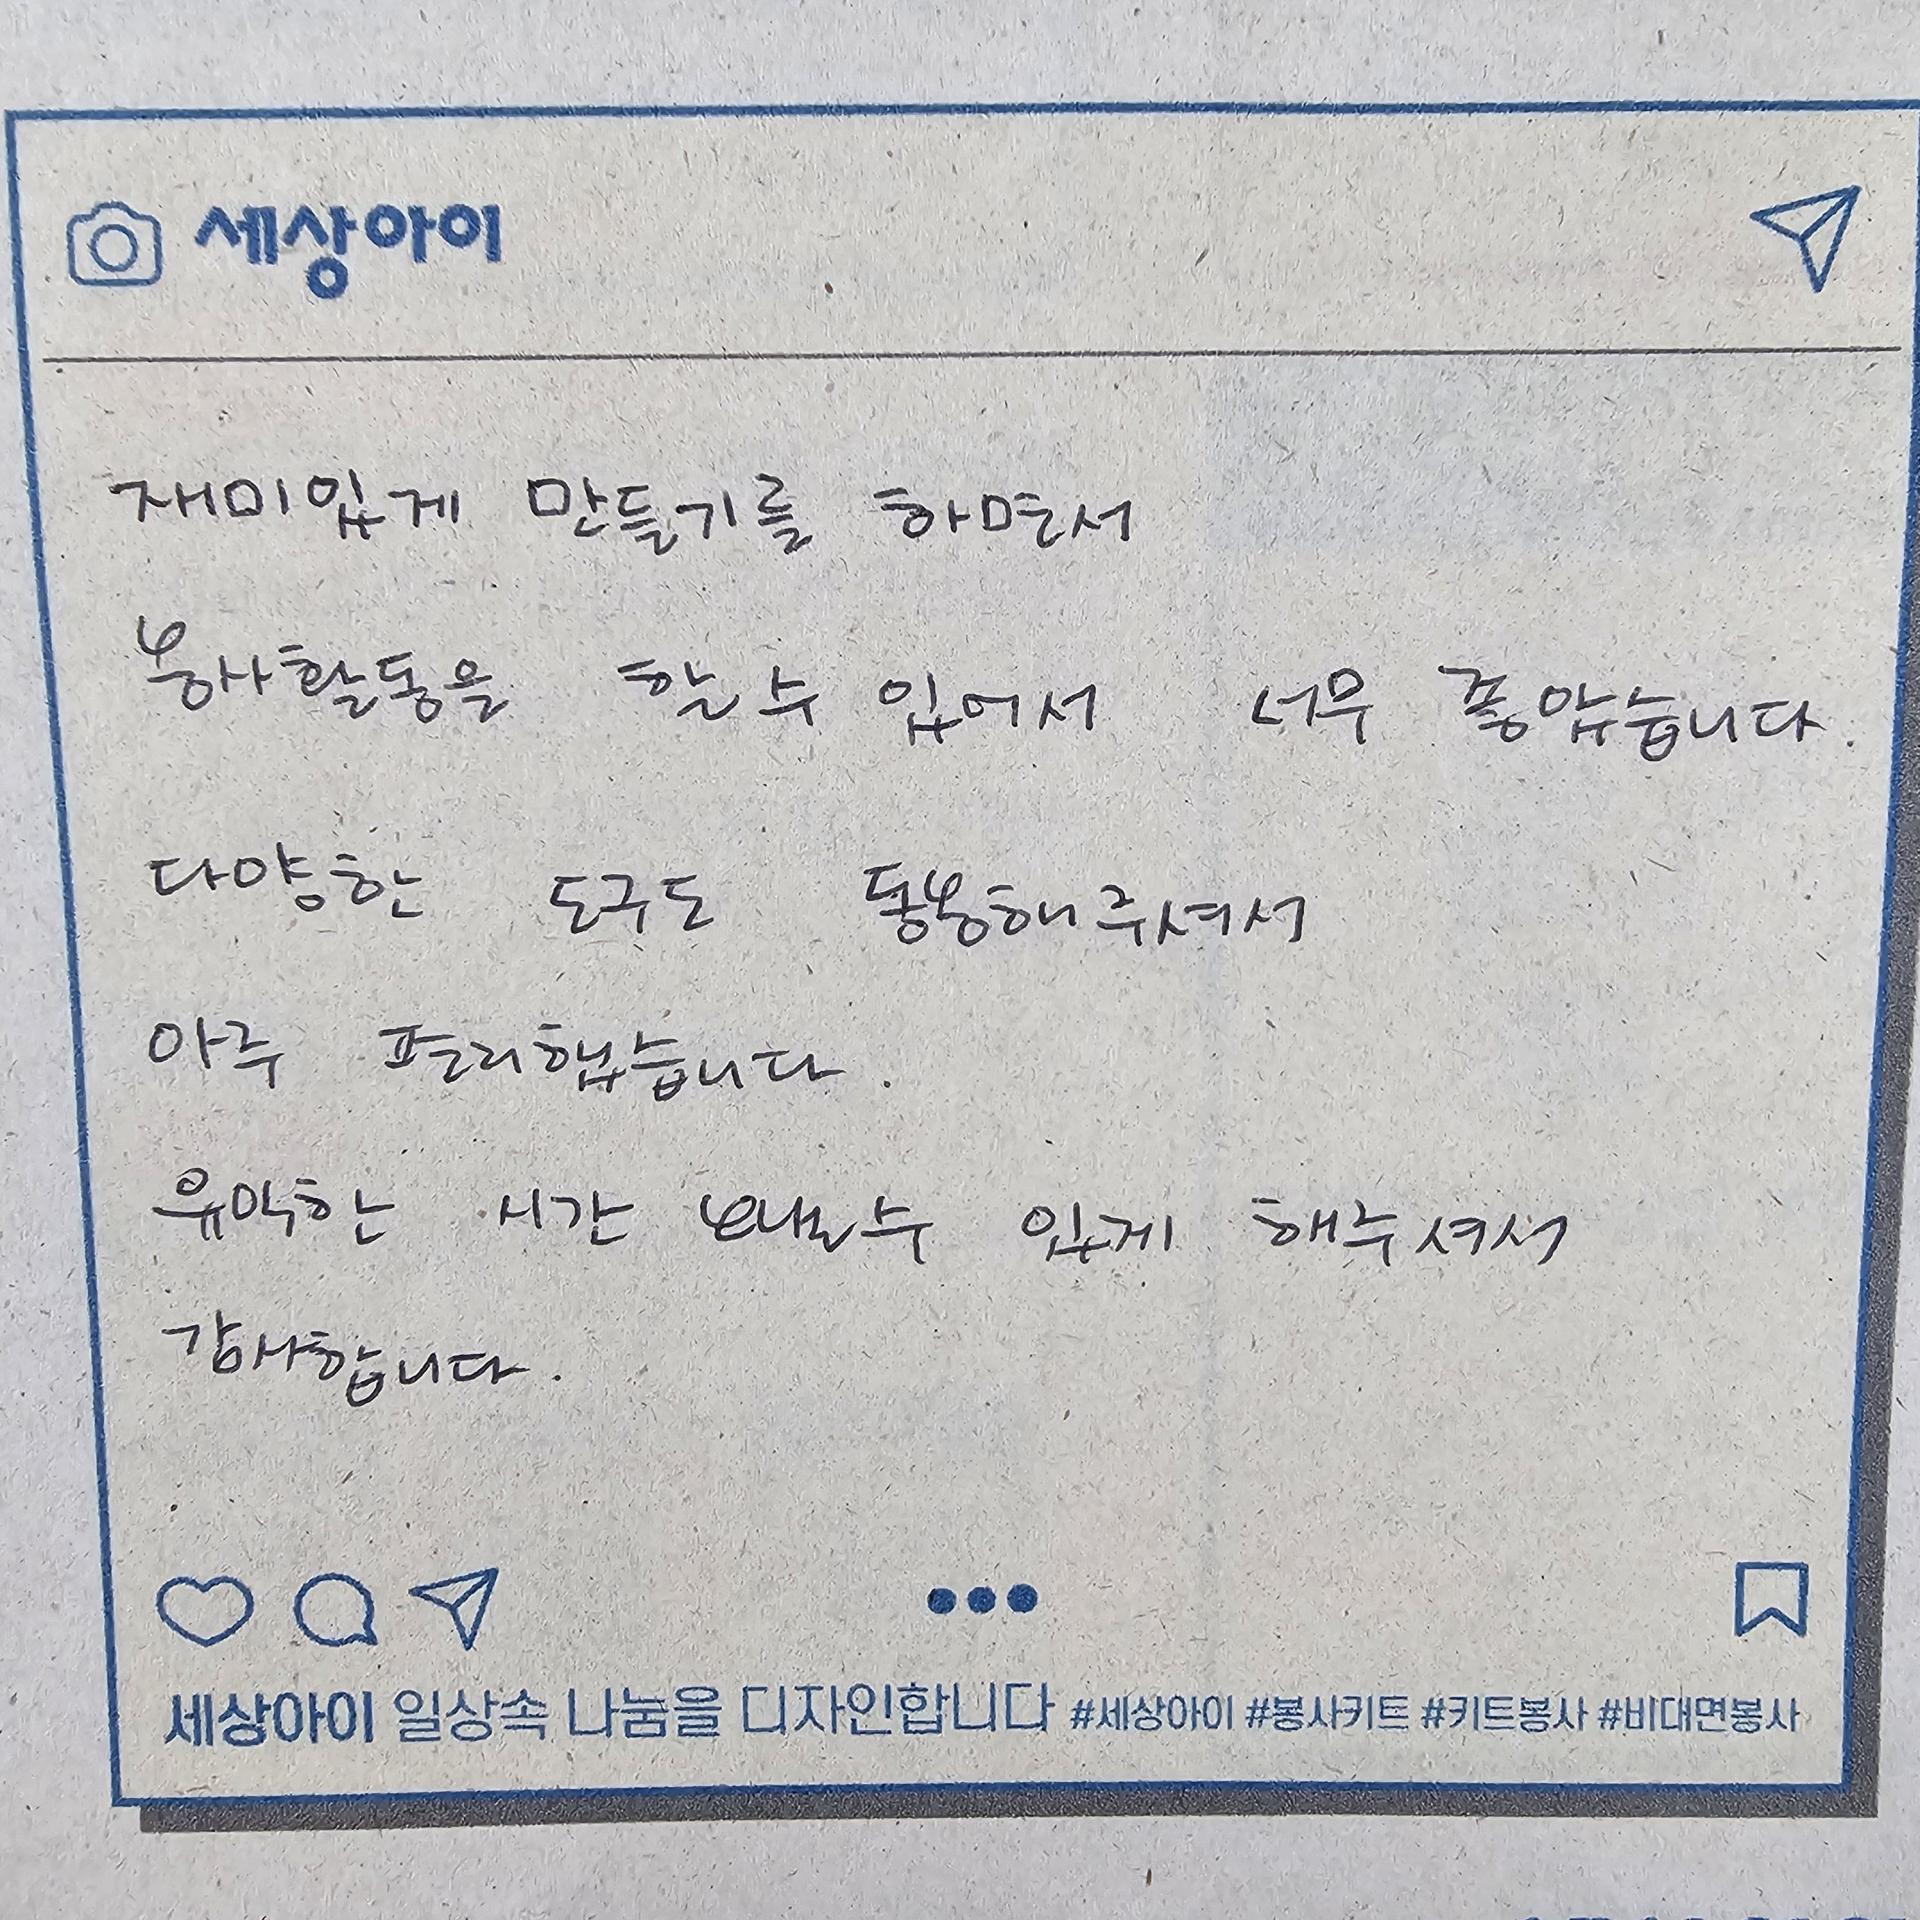 세상아이
재미있게 만들기를 하면서
봉사활동을 할 수 있어서 너무 좋았습니다.
다양한 도구도 동봉해주셔서
아주 편리했습니다.
유익한 시간 보낼수 있게 해주셔서
감사합니다.
세상아이 일상속 나눔을 디자인합니다 #세상아이 #봉사키트 #키트봉사 #비대면봉사